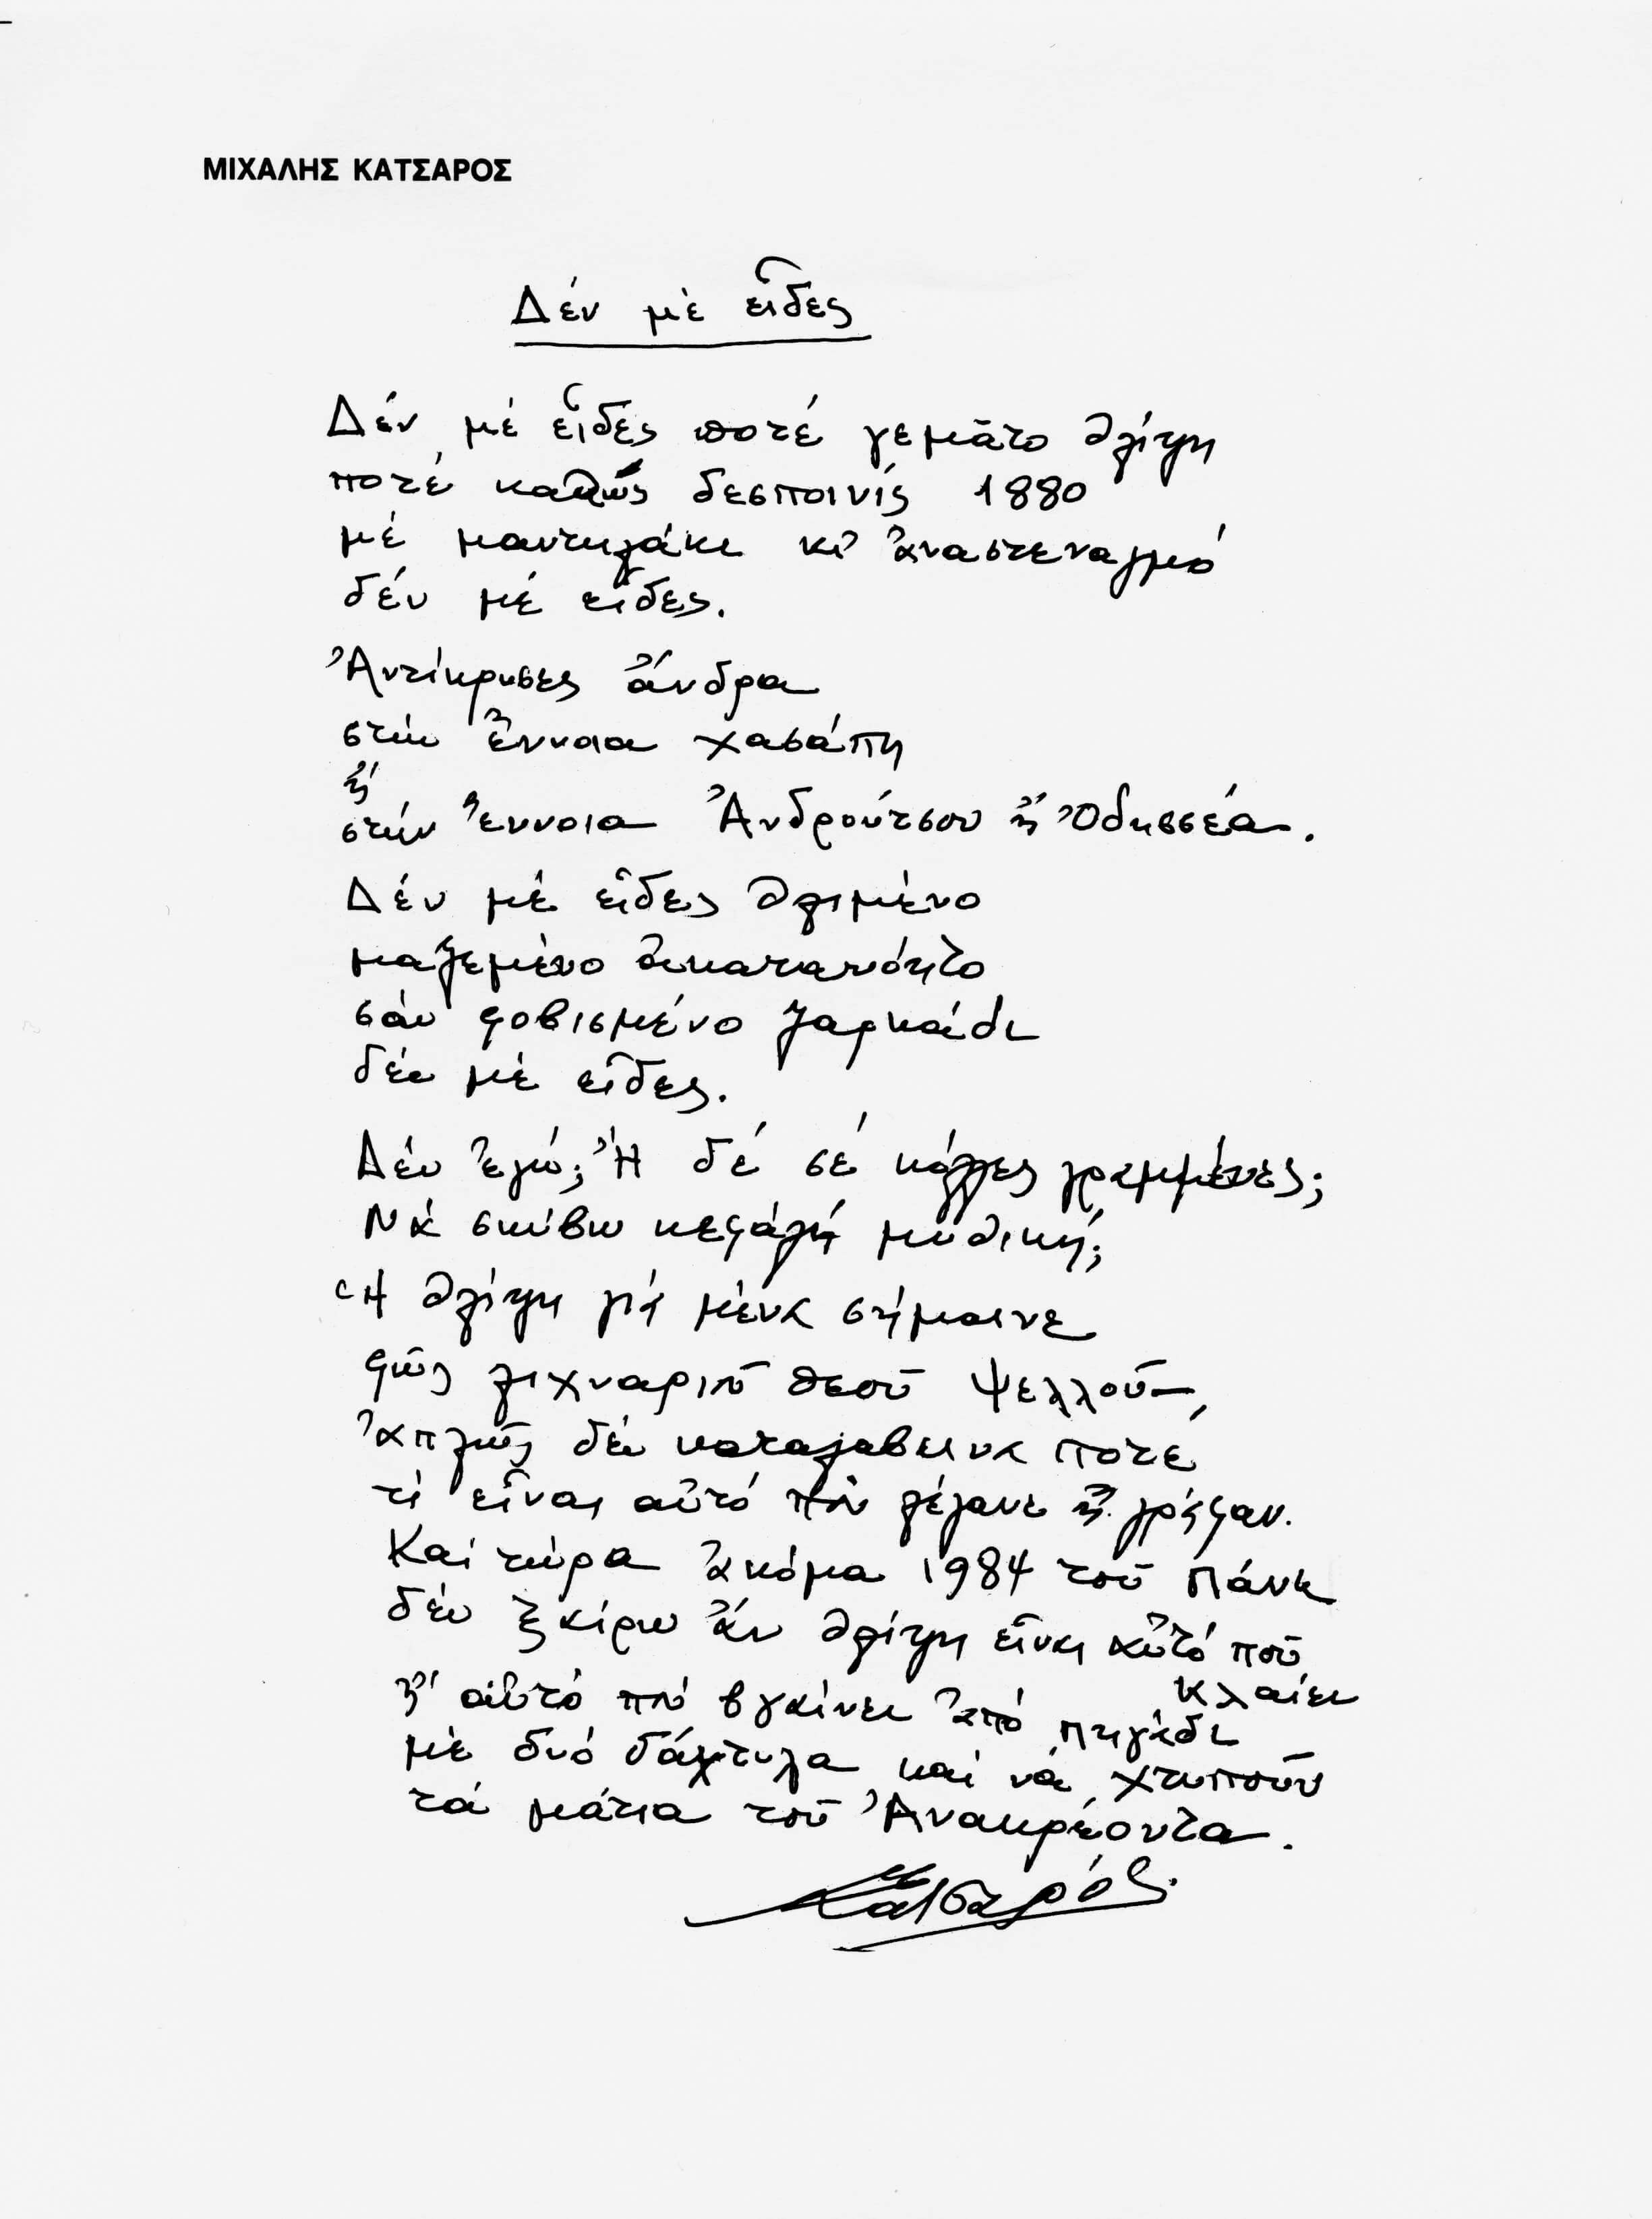 ΜΙΧΑΛΗΣ ΚΑΤΣΑΡΟΣ
Δέν μέ εἶδες
Δέν μέ εἶδες ποτέ γεμᾶτο θλίψη
ποτέ καθώς δεσποινίς 1880
μέ μαντηλάκι κι ἀναστεναγμό
δέν μέ εἶδες.
Ἀντίκρυσες ἄνδρα
στήν ἔννοια χασάπη
ἤ
στήν ἔννοια Ἀνδρούτσου ἤ Ὀδυσσέα.
Δέν μέ εἶδες θλιμένο
μαζεμένο ἀκατανόητο
σάν φοβισμένο ζαρκάδι
δέν μέ εἶδες.
Δέν ἐγώ; Ἤ δέ σέ κόλλες γραμμένες;
Νά σκύβω κεφάλή μυθική;
Ἡ θλίψη γιά μένα σήμαινε
φῶς λιχναριοῦ θεοῦ Ψελλοῦ—,
ἁπλῶς δέν καταλαβεινα ποτέ
τί εἶναι αὐτό πού λέγανε ἤ γράφαν.
Καί τώρα ἀκόμα 1984 τοῦ Πάνκ
δέν ξαίρω ἄν θλίψη εἶναι αὐτό πού
κλαίει
ἤ αὐτό πού βγαίνει ἀπό πηγάδι
μέ δυό δάχτυλα καί νά χτυποῦν
τά μάτια τοῦ Ἀνακρέοντα.
Κατσαρός